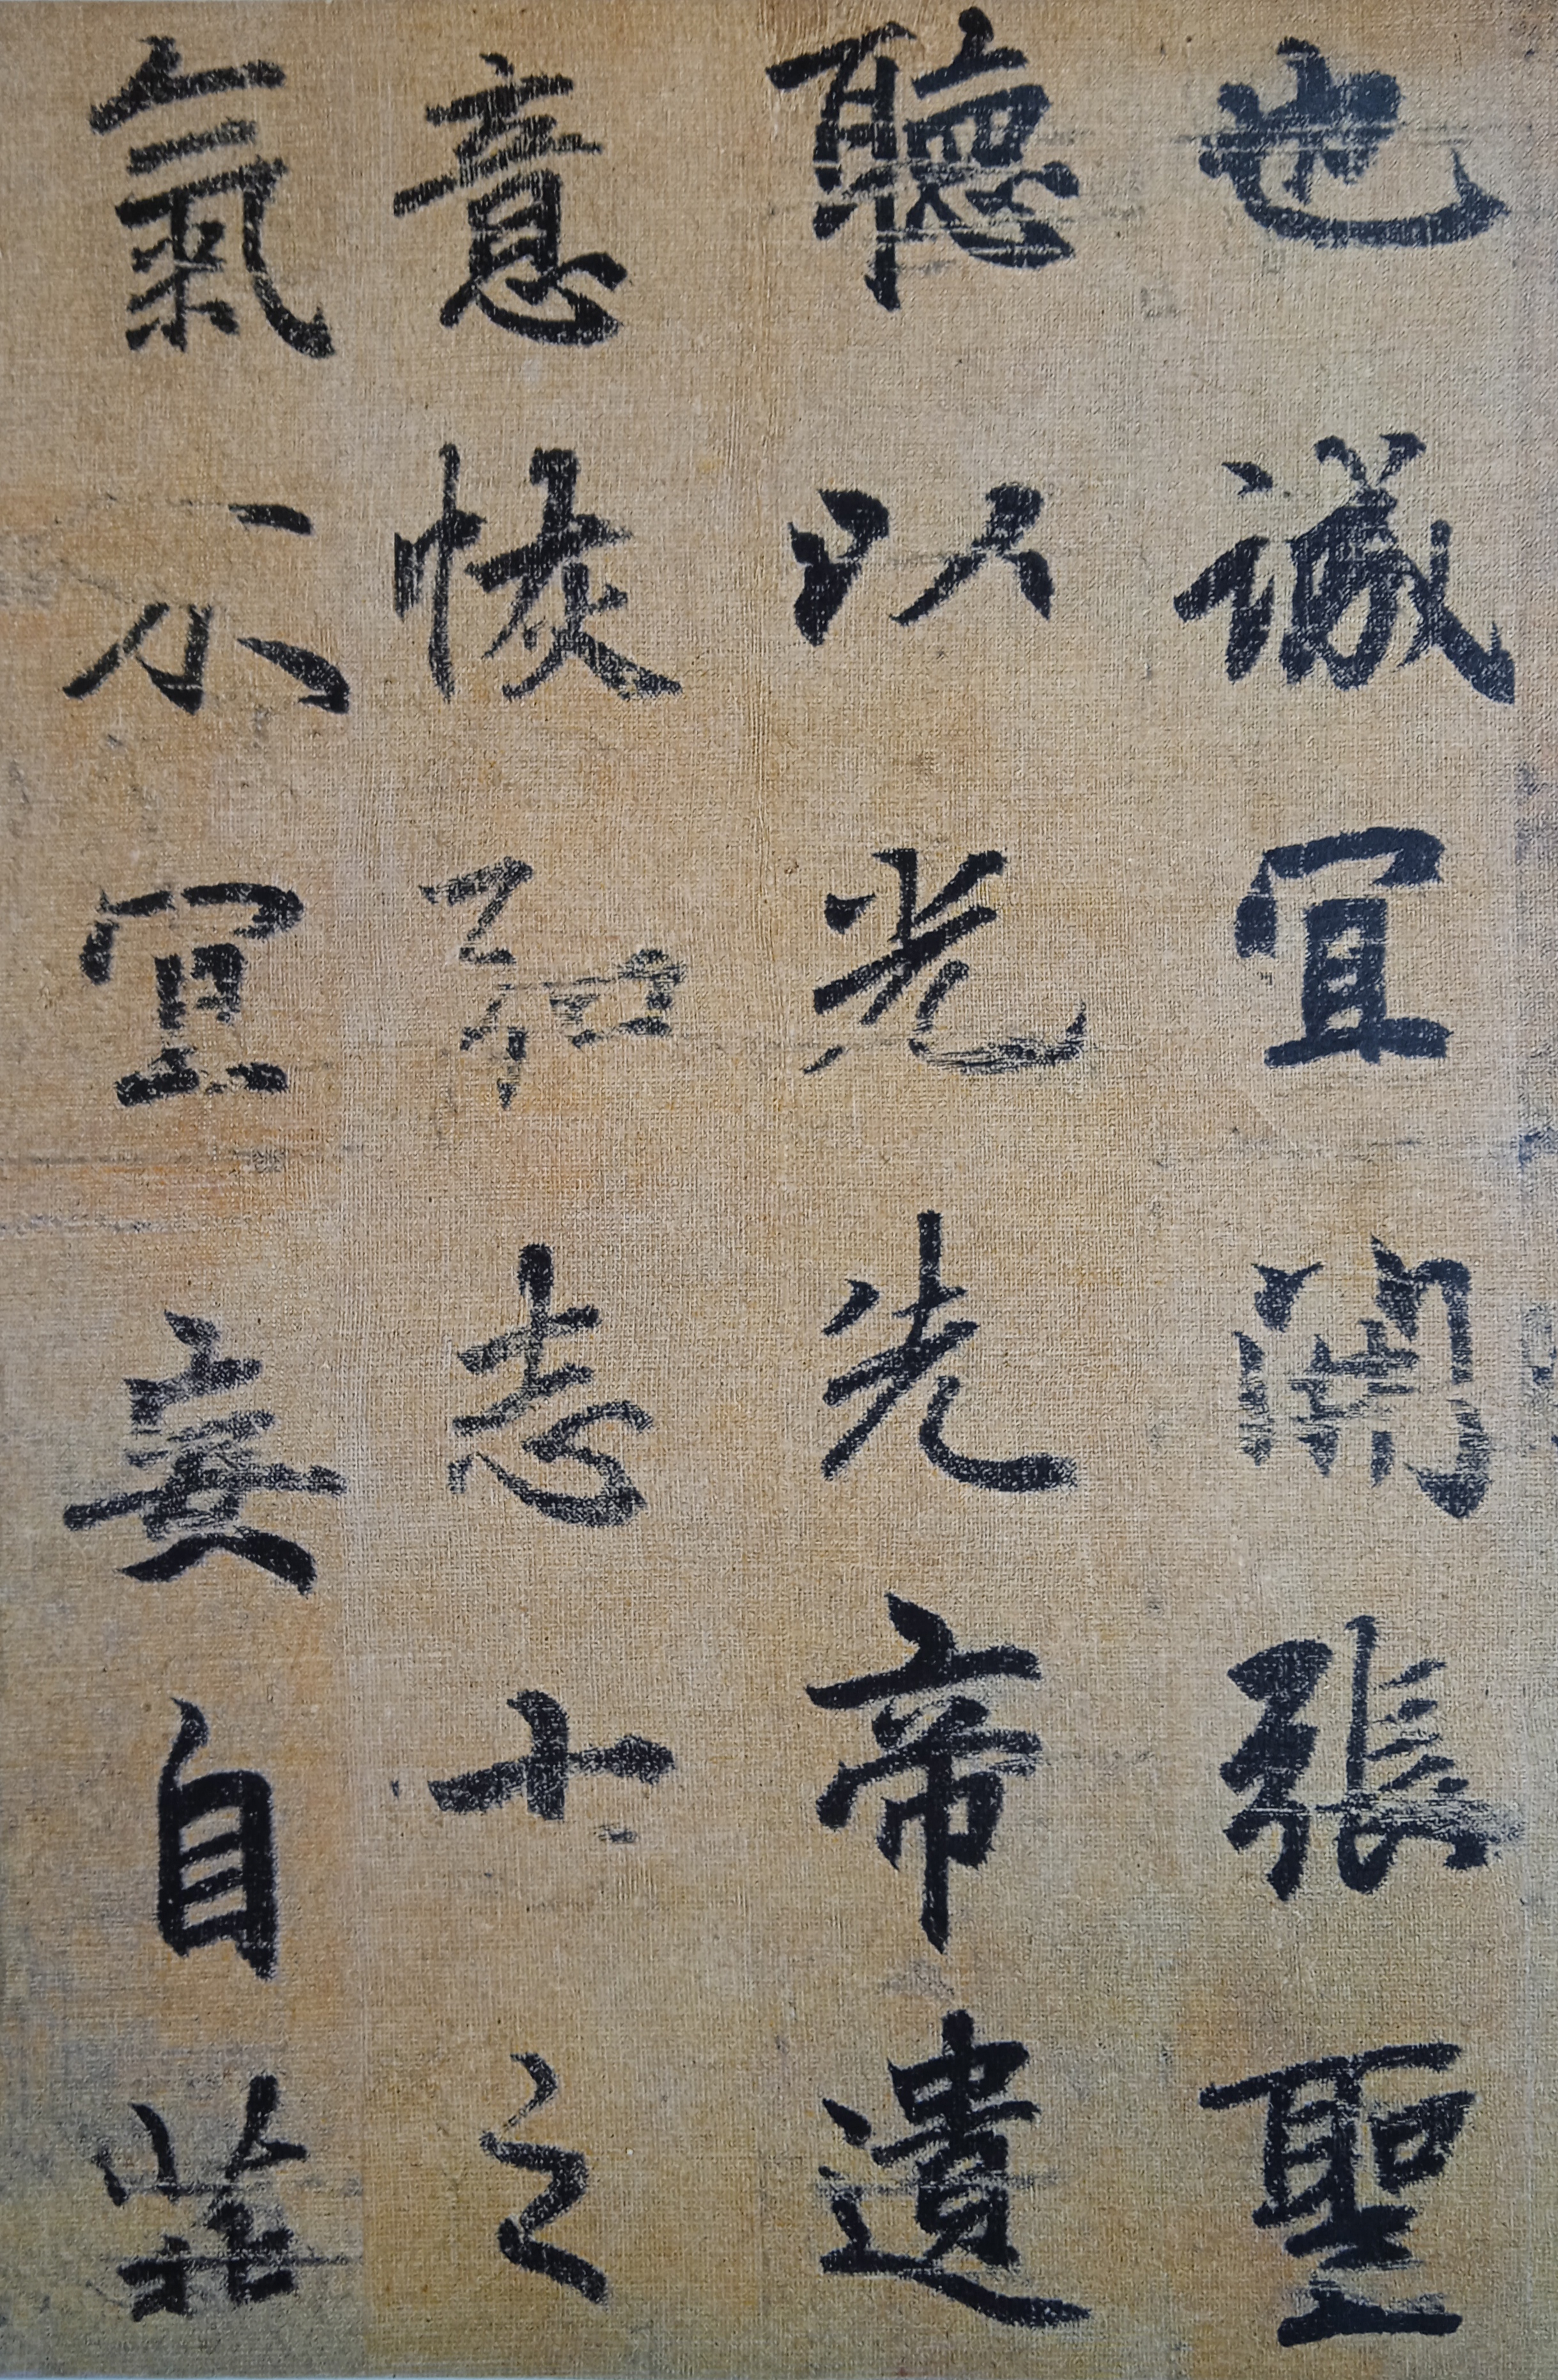 也議宜開張聖
聽以光先帝遺
意恢弘志士之
氣不宜妄自菲